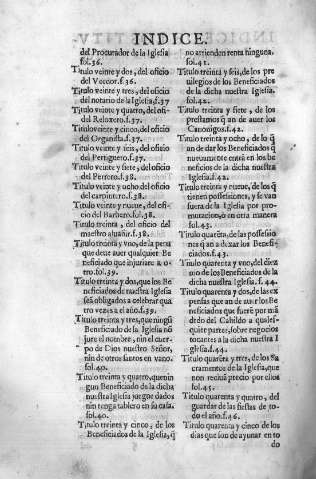 INDICE.
del Procurador de la Iglesia
fol.36.
Titulo veinte y dos, del oficio
del Veedor f.36.
Titulo veinte y tres, del oficio
del notario de la Iglesia.f.37
Titulo veinte y quatro, del oficio
del Reloxero.f.37.
Titulo veinte y cinco, del oficio
del Organista.f.37.
Titulo veinte y seis, del oficio
del Pertiguero.f.37.
Titulo veinte y siete, del oficio
del Perrero.f.38.
Titulo veinte y ocho del oficio
del carpintero.f.38.
Titulo veinte y nueue, del ofi-
cio del Barbero.fol.38.
Titulo treinta, del oficio del
maestro aluañir.f.38.
Titulo treinta y vno, de la pena
que deue auer qualquier Be
neficiado que injuriare a o-
tro.fol.39.
Titulo treinta y dos, que los Be
neficiados de nuestra Iglesia
seā obligados a celebrar qua
tro vezes a el año.f.39.
Titulo treinta y tres, que ningū
Beneficiado de la Iglesia nó
jure el nombre, nin el cuer-
po de Dios nuestro Señor,
nin de otros santos en vano.
fol.40.
Titulo treinta y quatro, que nin
gun Beneficiado de la dicha
nuestra Iglesia juegue dados
nin tenga tablero en su casa.
fol.40.
Titulo treinta y cinco, de los
Beneficiados de la Iglesia, q̄
no arrienden renta ninguna.
fol.41.
Titulo treinta y seis, de los pre
uilegios de los Beneficiados
de la dicha nuestra Iglesia.
fol.42.
Titulo treinta y siete, de los
prestamos q̄ an de auer los
Canonigos.f.42.
Titulo treinta y ocho, de lo q̄
an de dar los Beneficiados q̄
nueuamente entrā en los be
neficios de la dicha nuestra
Iglesia.f.42.
Titulo treinta y nueue, de los q̄
tienen possessiones, y se van
fuera de la Iglesia por pro-
mutacion, ò en otra manera
fol.43.
Titulo quarēta, de las possessio
nes q̄ an a dexar los Benefi-
ciados.f.43.
Titulo quarenta y vno, del diez
mo de los Beneficiados de la
dicha nuestra Iglesia. f.44.
Titulo quarenta y dos, de las ex
pensas que an de auer los Be
neficiados que fuerē por mā
dado del Cabildo a quales-
quier partes, sobre negocios
tocantes a la dicha nuestra I
glesia.f.44.
Titulo quarēta y tres, de los Sa
cramentos de la Iglesia, que
non reciuā precio por ellos
fol.45.
Titulo quarenta y quatro, del
guardar de las fiestas de to-
do el año.f.46.
Titulo quarenta y cinco de los
dias que son de ayunar en to
do